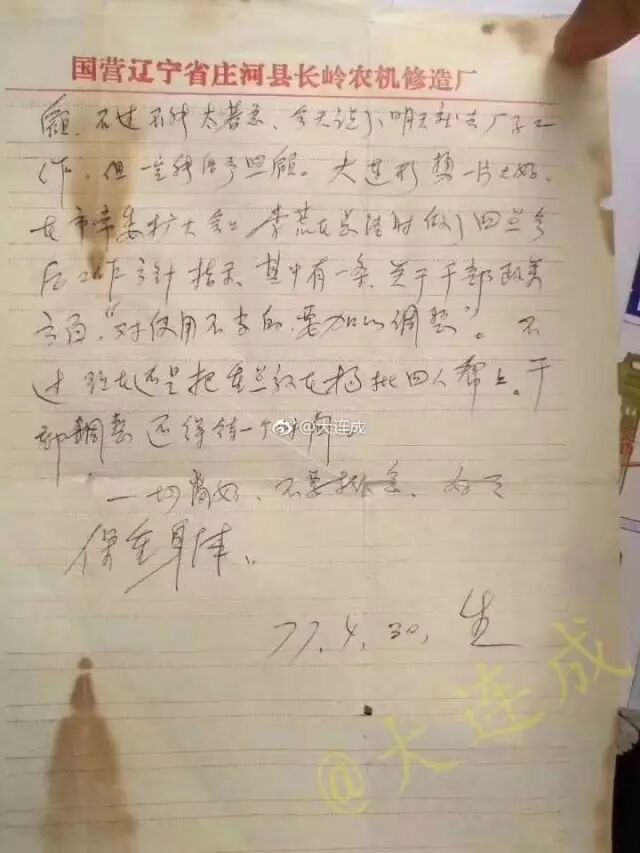 国营辽宁省庄河县长岭农机修造厂
顾,不过不能太着急,今天谈,明天就去厂子工
作,但是能给予照顾。大连形势一片大好,
在市常委扩大会上 李荒在总结时做了四点今
后工作方针指示,其中有一条,关于干部政策
方面,“对使用不当的,要加以调整”。不
过现在还是把重点放在揭批四人帮上,干
部调整还得待一个时期。
@大连成
一切尚好,不要挂念,好了
保重身体,
77.4.30, 生
@大连成